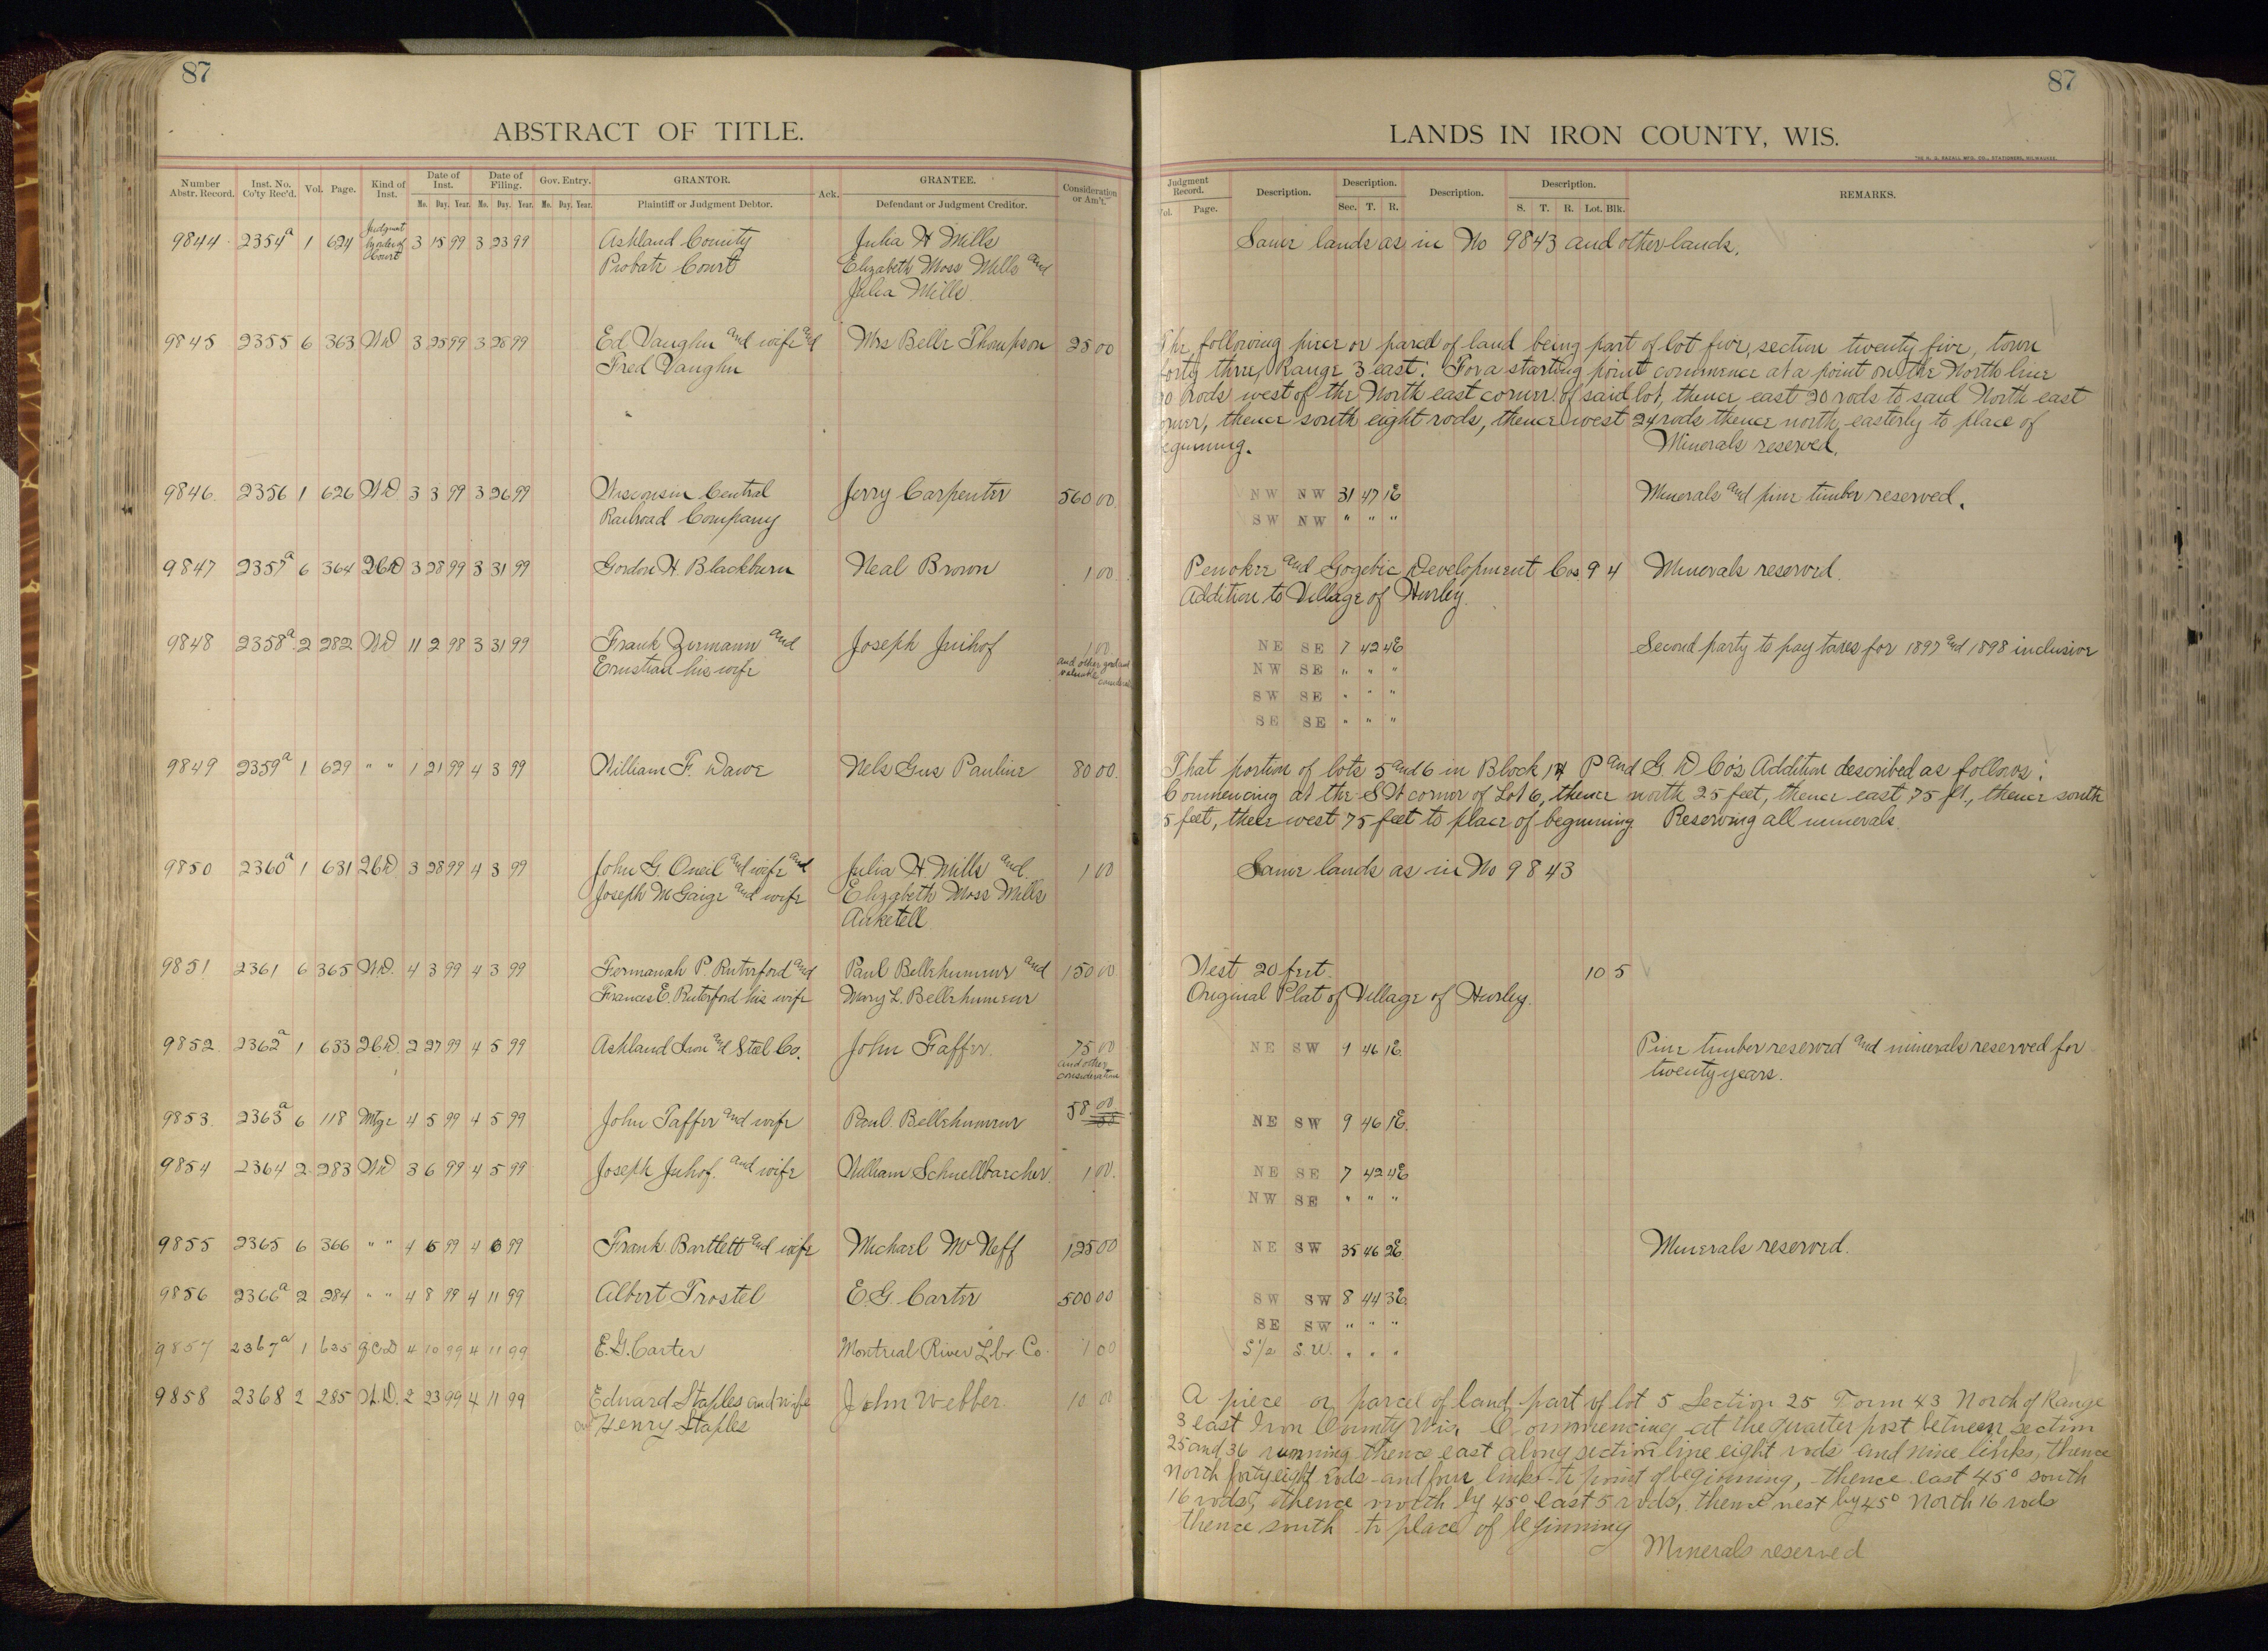 87
ABSTRACT OF TITLE.
Number Abstr. Record. Inst. No. Co'ty Rec'd. Vol. Page. Kind of Inst. Date of Inst. Mo. Day. Year. Date of Filing. Mo. Day. Year. Gov. Entry. Mo. Day. Year. GRANTOR. Plaintiff or Judgment Debtor. Ack. GRANTEE. Defendant or Judgment Creditor. Consideration or Am't.
9844 2354a 1 624 Judgment by order of Court 3 15 99 3 23 99 Ashland County Julia H Mills
Probate Court Elizabeth Moss Mills and
Julia Mills.
9845 2355 6 363 WD 3 25 99 3 25 99 Ed Vaughn and wife and Mrs Belle Thompson 25 00
Fred Vaughn
9846 2356 1 626 WD 3 3 99 3 26 99 Wisconsin Central Jerry Carpenter 560 00
Railroad Company
9847 2357a 6 364 QCD 3 28 99 3 31 99 Gordon H. Blackburn Neal Brown 1 00
9848 2358a 2 282 WD 11 2 98 3 31 99 Frank Zermann and Joseph Juihof 1 00
Ernestian his wife and other good and valuable considerations
9849 2359a 1 629 " " 1 21 99 4 3 99 William F. Dawe Nels Gus Pauline 80 00
9850 2360a 1 631 QCD 3 28 99 4 3 99 John G. Oneil and wife and Julia H. Mills and 1 00
Joseph McGaige and wife Elizabeth Moss Mills
Anketell
9851 2361 6 365 WD. 4 3 99 4 3 99 Fermanah P. Ruterford and Paul Bellehumeur and 150 00
Frances E. Ruterford his wife Mary L. Bellehumeur
9852 2362a 1 633 QCD. 2 27 99 4 5 99 Ashland Iron and Steel Co. John Taffer. 75 00
and other considerations
9853 2363a 6 118 Mtge 4 5 99 4 5 99 John Taffer and wife Paul Bellehumeur 58 00
9854 2364 2 283 WD 3 6 99 4 5 99 Joseph Juhof. and wife William Schnellbaecher. 1 00.
9855 2365 6 366 " " 4 6 99 4 6 99 Frank Bartlett and wife Michael McNeff 125 00
9856 2366a 2 284 " " 4 8 99 4 11 99 Albert Trostel E. G. Carter 500 00
9857 2367a 1 635 QCD 4 10 99 4 11 99 E. G. Carter Montreal River Lbr Co. 1 00
9858 2368 2 285 W.D. 2 23 99 4 11 99 Edward Staples and wife John Webber. 10 00
and Henry Staples
87
LANDS IN IRON COUNTY, WIS.
THE H. G. RAZALL MFG. CO., STATIONERS, MILWAUKEE.
Judgment Record. Vol. Page. Description. Description. Sec. T. R. Description. Description. S. T. R. Lot. Blk. REMARKS.
Same lands as in No 9843 and other lands.
The following piece or parcel of land being part of lot five, section twenty five, town
forty three, Range 3 east: For a starting point commence at a point on the North line
20 rods west of the North east corner of said lot, thence east 20 rods to said North east
corner, thence south eight rods, thence west 24 rods thence north easterly to place of
beginning. Minerals reserved.
NW NW 31 47 1E Minerals and pine timber reserved.
SW NW " " "
Penokee and Gogebic Development Cos 9 4 Minerals reserved.
Addition to Village of Hurley.
NE SE 7 42 4E Second party to pay taxes for 1897 and 1898 inclusive
NW SE " " "
SW SE " " "
SE SE " " "
That portion of lots 5 and 6 in Block 14 P and G. D Co's Addition described as follows:
Commencing at the SW corner of Lot 6, thence north 25 feet, thence east 75 ft., thence south
25 feet, thence west 75 feet to place of beginning. Reserving all minerals.
Same lands as in No 9843
West 20 feet. 10 5
Original Plat of Village of Hurley.
NE SW 9 46 1E Pine timber reserved and minerals reserved for
twenty years.
NE SW 9 46 1E.
NE SE 7 42 4E
NW SE " " "
NE SW 35 46 2E. Minerals reserved.
SW SW 8 44 3E
SE SW " " "
S 1/2 S.W. " " "
A piece or parcel of land part of lot 5 Section 25 Town 43 North of Range
3 east Iron County Wis. Commencing at the quarter post between section
25 and 36 running thence east along section line eight rods and nine links, thence
North forty eight rods and four links to point of beginning, thence east 45° south
16 rods, thence north by 45° east 5 rods, thence west by 45° North 16 rods
thence south to place of beginning
Minerals reserved